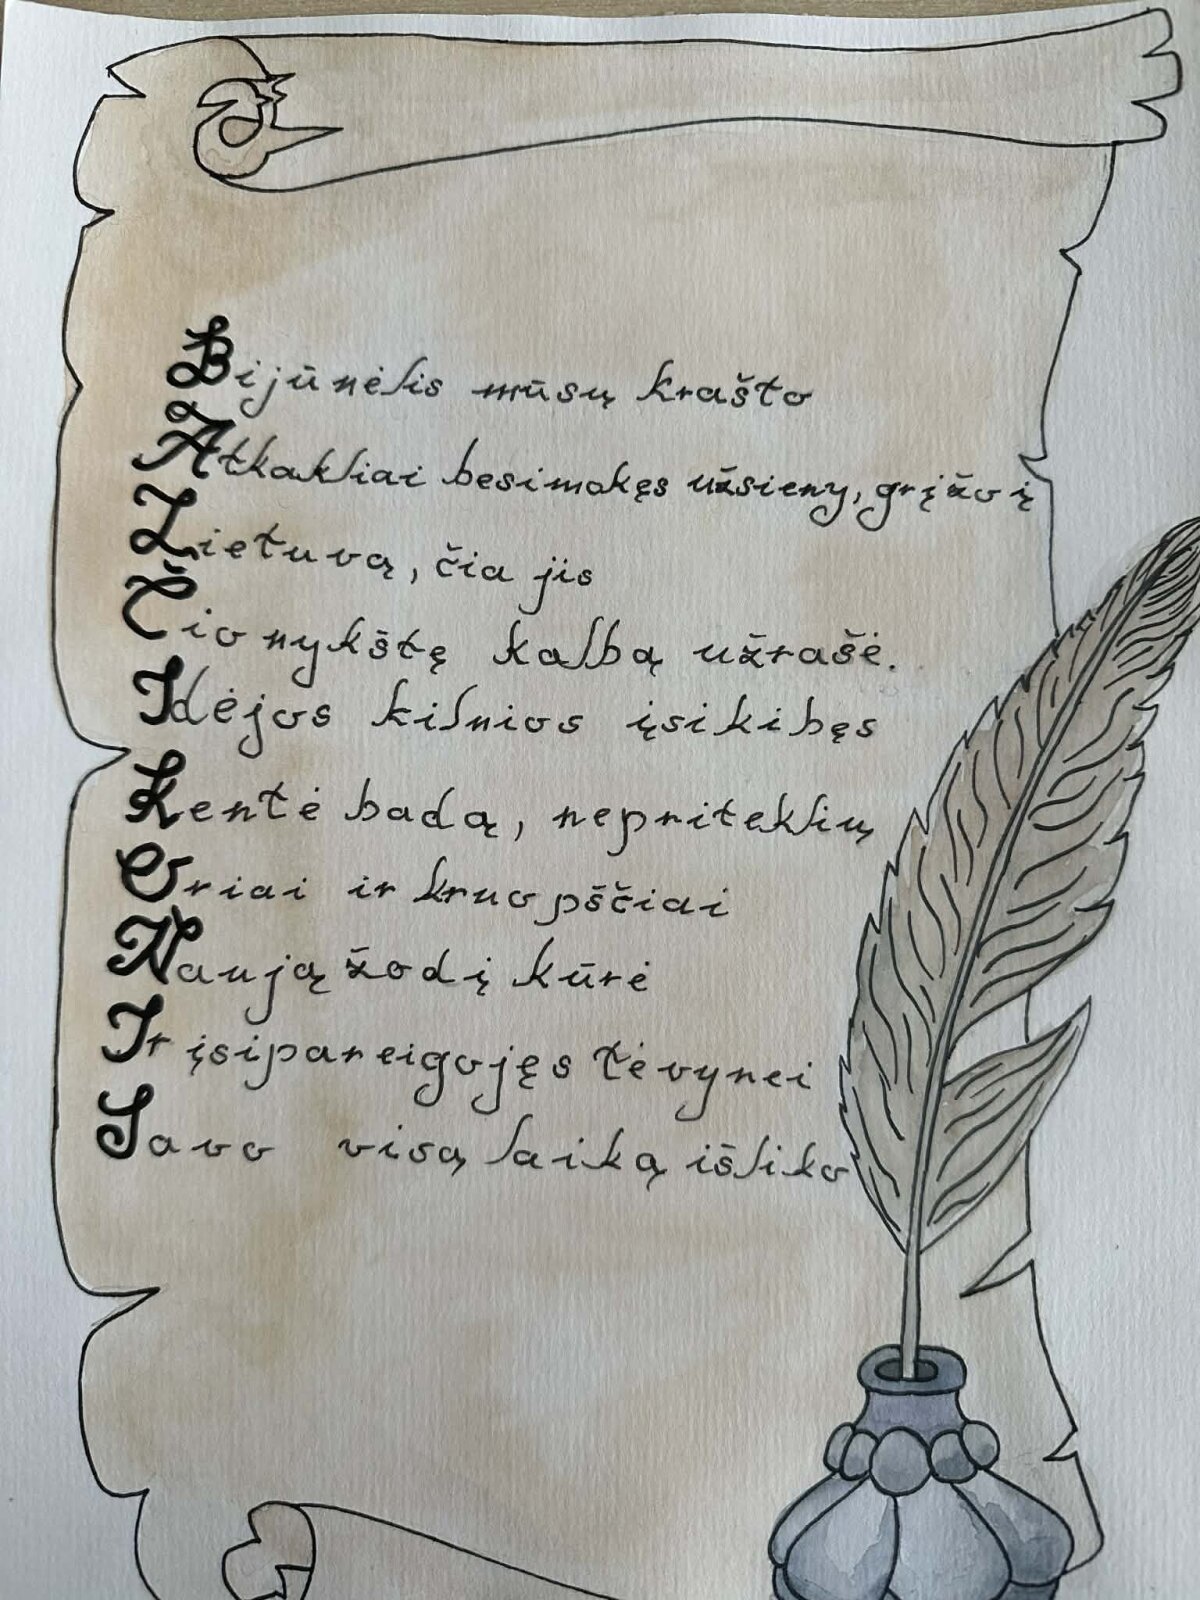 Bijūnėlis mūsų krašto
Atkakliai besimokęs užsieny, grįžo į
Lietuvą, čia jis
Čionykštę kalbą užrašė.
Idėjos kilnios įsikibęs
Kentė badą, nepriteklių,
Oriai ir kruopščiai
Naują žodį kūrė
Ir įsipareigojęs tėvynei
Savo visą laiką išliko